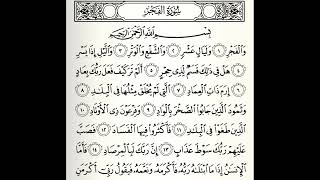 سُورَةُ الفَجْرِ
بِسْمِ اللَّهِ الرَّحْمَٰنِ الرَّحِيمِ
وَالْفَجْرِ ١ وَلَيَالٍ عَشْرٍ ٢ وَالشَّفْعِ وَالْوَتْرِ ٣ وَاللَّيْلِ إِذَا يَسْرِ
٤ هَلْ فِي ذَٰلِكَ قَسَمٌ لِّذِي حِجْرٍ ٥ أَلَمْ تَرَ كَيْفَ فَعَلَ رَبُّكَ بِعَادٍ
٦ إِرَمَ ذَاتِ الْعِمَادِ ٧ الَّتِي لَمْ يُخْلَقْ مِثْلُهَا فِي الْبِلَادِ ٨
وَثَمُودَ الَّذِينَ جَابُوا الصَّخْرَ بِالْوَادِ ٩ وَفِرْعَوْنَ ذِي الْأَوْتَادِ ١٠
الَّذِينَ طَغَوْا فِي الْبِلَادِ ١١ فَأَكْثَرُوا فِيهَا الْفَسَادَ ١٢ فَصَبَّ
عَلَيْهِمْ رَبُّكَ سَوْطَ عَذَابٍ ١٣ إِنَّ رَبَّكَ لَبِالْمِرْصَادِ ١٤ فَأَمَّا
الْإِنسَانُ إِذَا مَا ابْتَلَاهُ رَبُّهُ فَأَكْرَمَهُ وَنَعَّمَهُ فَيَقُولُ رَبِّي أَكْرَمَنِ